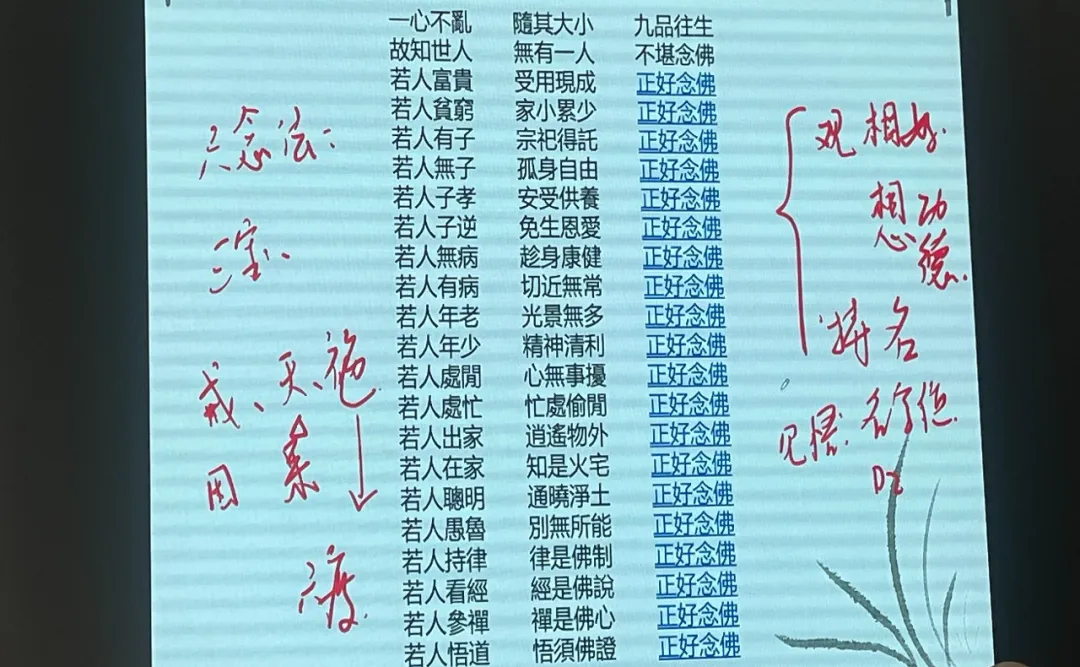 一心不亂 隨其大小 九品往生
故知世人 無有一人 不堪念佛
若人富貴 受用現成 正好念佛
若人貧窮 家小累少 正好念佛
若人有子 宗祀得託 正好念佛
若人無子 孤身自由 正好念佛
若人子孝 安受供養 正好念佛
若人子逆 免生恩愛 正好念佛
若人無病 趁身康健 正好念佛
若人有病 切近無常 正好念佛
若人年老 光景無多 正好念佛
若人年少 精神清利 正好念佛
若人處閒 心無事擾 正好念佛
若人處忙 忙處偷閒 正好念佛
若人出家 逍遙物外 正好念佛
若人在家 知是火宅 正好念佛
若人聰明 通曉淨土 正好念佛
若人愚魯 別無所能 正好念佛
若人持律 律是佛制 正好念佛
若人看經 經是佛說 正好念佛
若人參禪 禪是佛心 正好念佛
若人悟道 悟須佛證 正好念佛
六念法:
三宝、
戒、天、施
因 果
六度.
观 相好.
想 功德.
持名
名字位